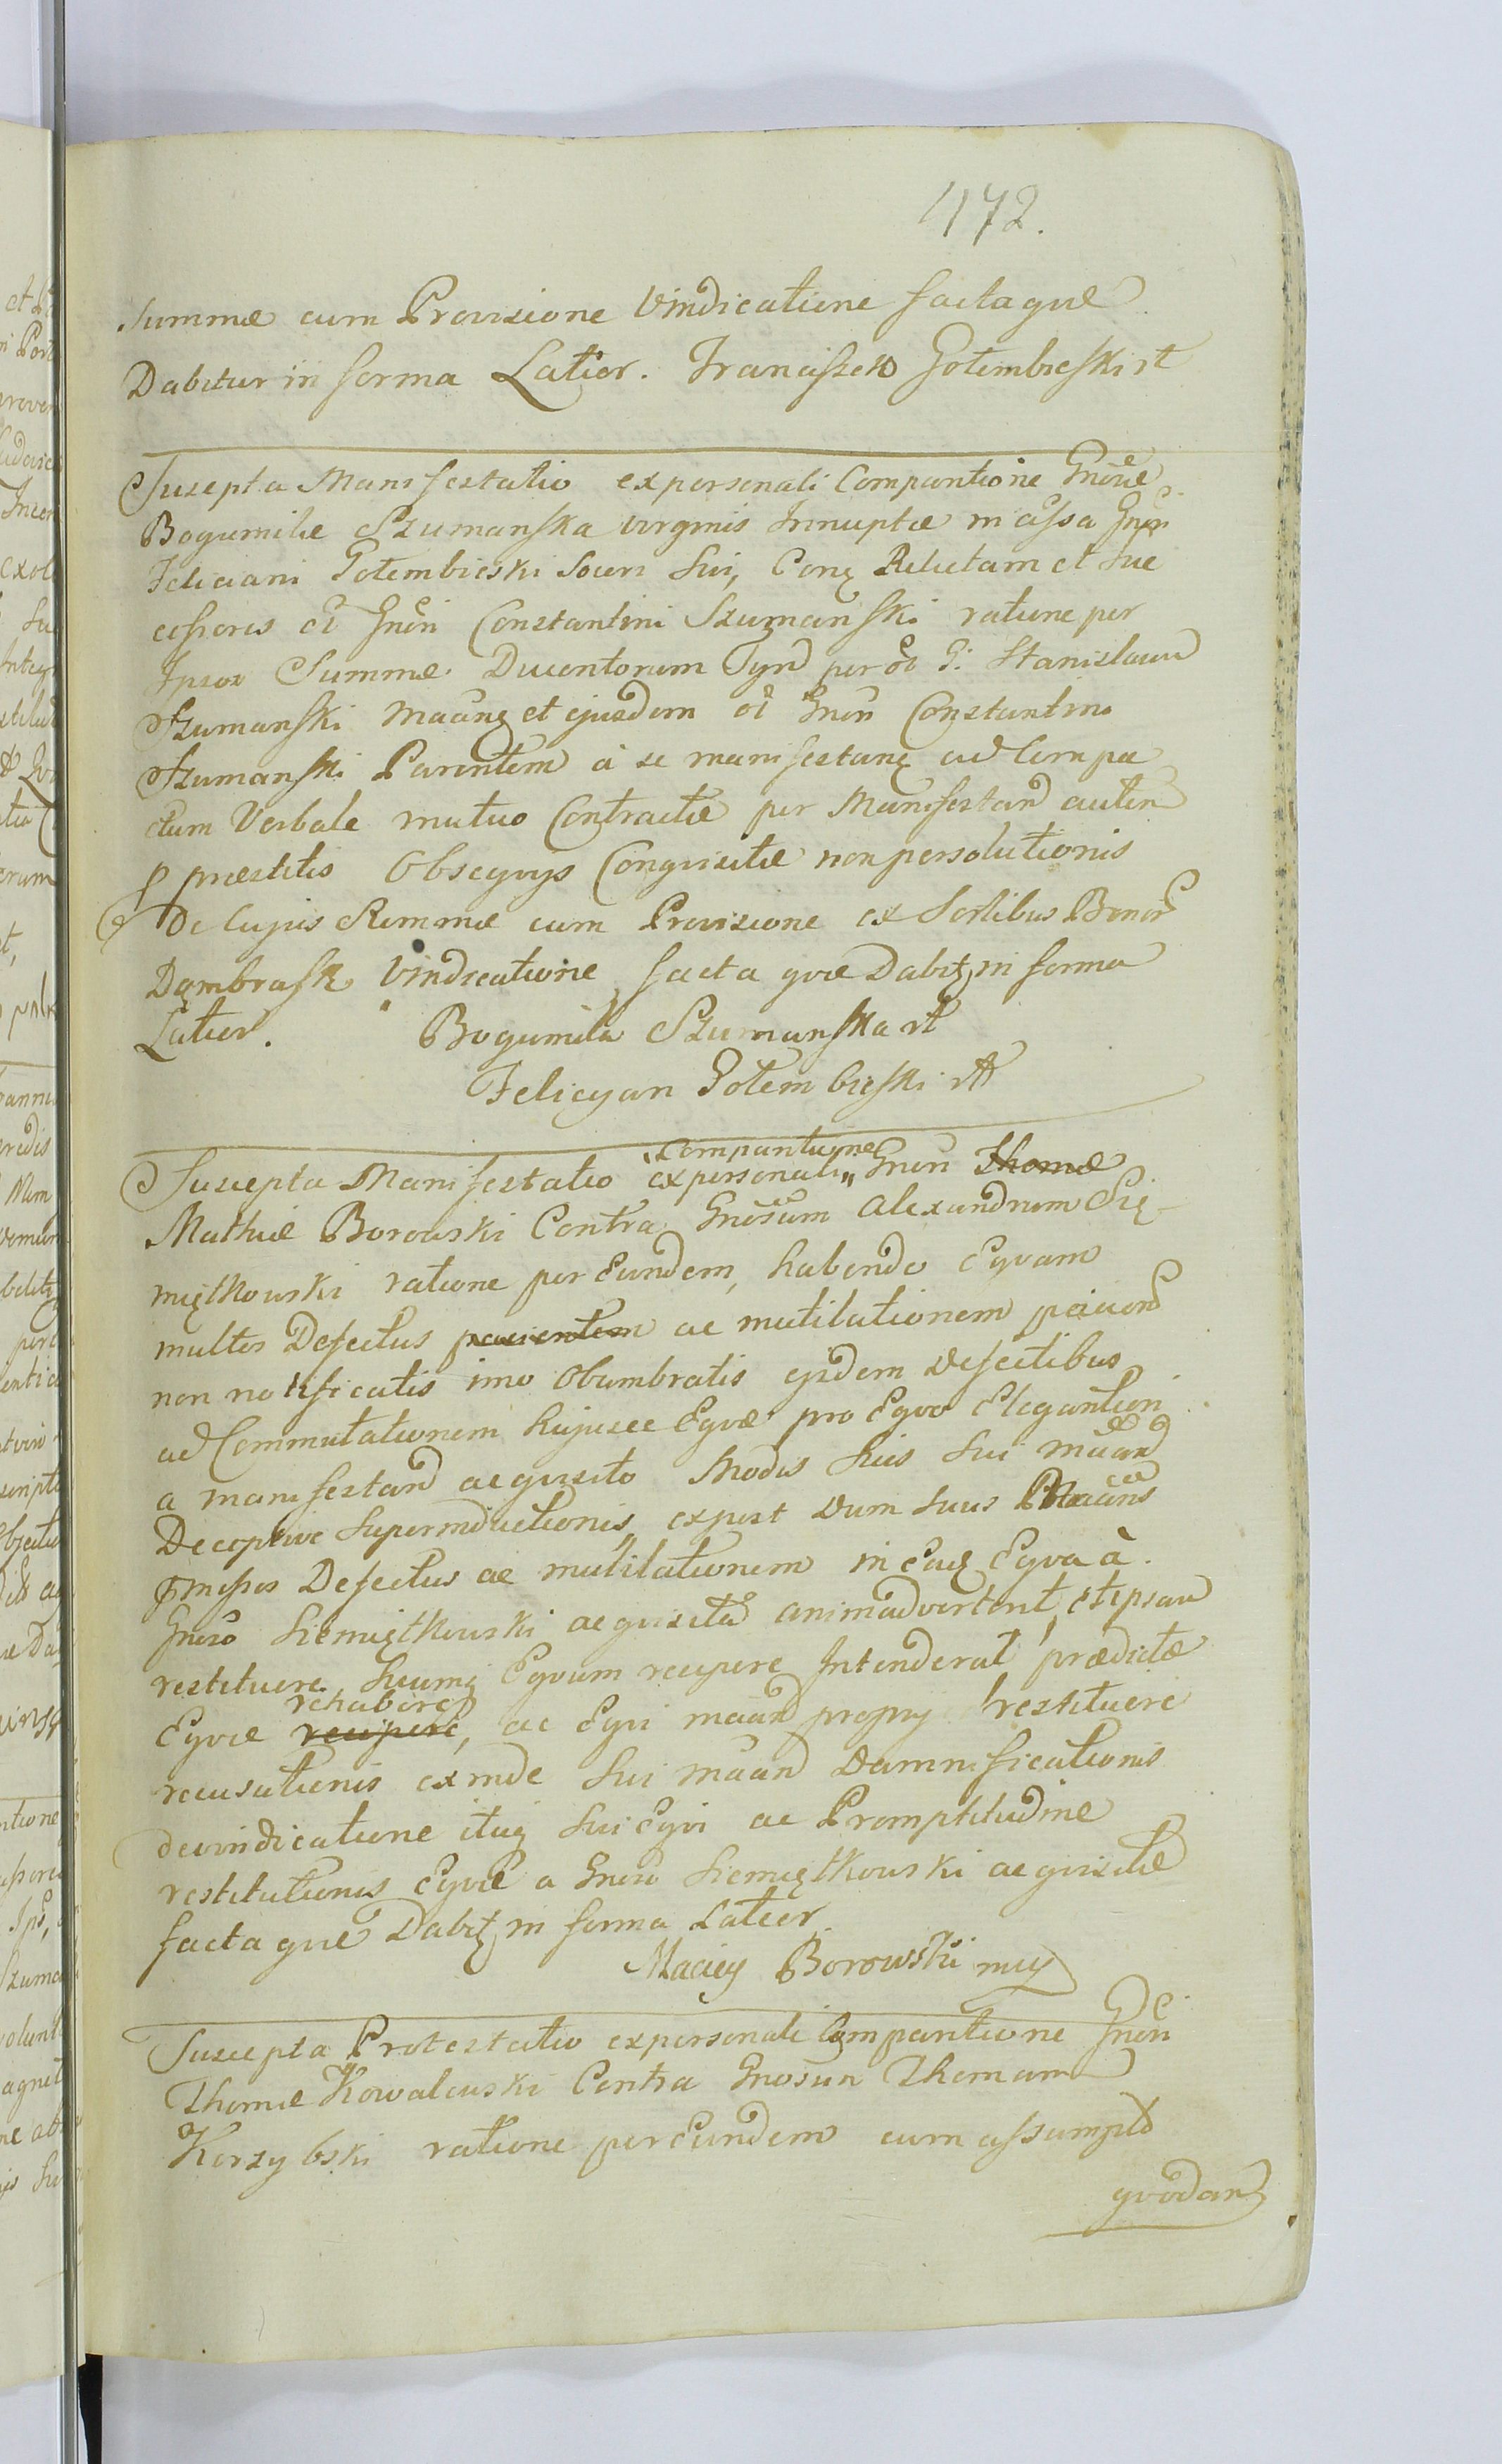 1172.
Summæ cum Provisione Vindicatione facta quæ
Dabitur in forma Latior. Franciszek Gołembieski rt
Suscepta Manifestatio ex personali Comparitione Gnosæ
Bogumilæ Szumanska virginis Innuptæ in assa Gnosi
Feliciani Gotembieski Soceri Sui, Conq Relictam et Suc
cessores ol Gnosi Constantini Szumanski ratione per
Ipsos Summæ Ducentorum Tynf per ol G: Stanislaum
Szumanski Maang et ejusdem ol Gnosi Constantini
Szumanski Parentem à se manifestanq ad Compa
ctum Verbale mutuo Contractæ per Manifestand autem
p præstitis Obsequys Conquisitæ non persolutionis
De Cujus Summæ cum Provisione ex Sortibus Bonor
Dąmbrask Vindicatione facta quæ Dabitq in forma
Latior. Bogumiła Szumanska rt
Felicyan Gołembieski rtt
Suscepta Manifestatio ex personali Comparitione Gnosi Thomæ
Mathiæ Borowski Contra Gnosum Alexandrum Się-
miątkowski ratione per Eundem, habendo Equam
multos Defectus pacientem ac mutilationem paciend
non notificatis imo Obumbratis ejsdem Defectibus
ad Commutationem hujusce Equæ pro Equo Elegantiori
a manifestand acquisito Modis Suis Sui maand
Deceptivæ Superinductionis, ex post Dum Suus Maans
pmissos Defectus ac mutilationem in Eadq Equa à
Gnoso Siemiątkowski acquisita animadvertent, et ipsam
restituere Suumq Equum recipere Intenderat prædictæ
Equæ recipere rehabere, ac Equi maand propry restituere
recusationis exinde Sui maand Damnificationis
devindicatione itaq Sui Equi ac Promptitudine
restitutionis Equæ a Gnoso Siemiątkowski acquisitæ
facta quæ Dabitq in forma Latior.
Maciey Borowski mp
Suscepta Protestatio ex personali Comparitione Gnosi
Thomæ Kowalewski Contra Gnosum Thomam
Korzybski ratione per Eundem cum assumpto
quodam